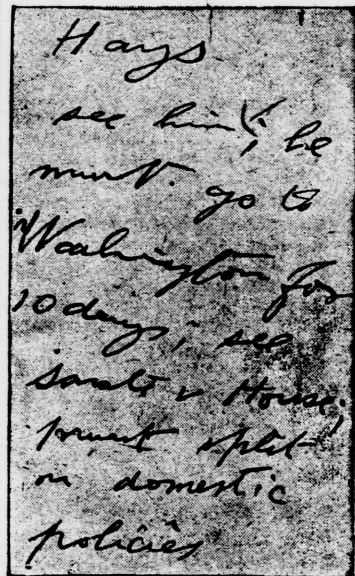 Hays
see him; he
must go to
Washington for
10 days; see
Senate & House;
prevent split
on domestic
policies